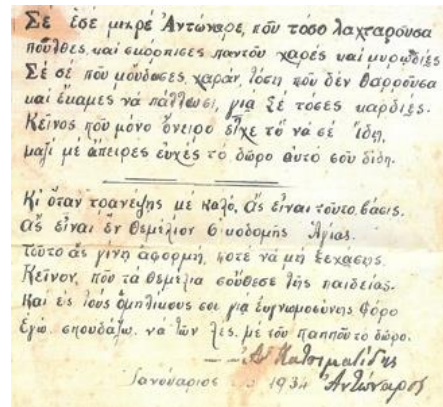 Σὲ ἐσὲ μικρὲ Ἀντώναρε, ποῦ τόσο λαχταροῦσα
ποῦλθες καὶ σκόρπισες παντοῦ χαρὲς καὶ μυρωδιές
Σὲ σὲ ποῦ μοὔδωσες χαράν, τόση ποῦ δὲν θαρροῦσα
καὶ ἔκαμες νὰ πάλλωσι, γιὰ Σὲ τόσες καρδιές.
Κεῖνος ποῦ μόνο ὄνειρο εἶχε τὸ νὰ σὲ ἴδῃ,
μαζὶ μὲ ἄπειρες εὐχὲς τὸ δῶρο αὐτὸ σοῦ δίδη.
Κι ὅταν τρανέψῃς μὲ καλό, ἂς εἶναι τοῦτο βάσις.
Ἂς εἶναι ἓν θεμέλιον οἰκοδομῆς Ἁγίας.
Τοῦτο ἂς γίνῃ ἀφορμή, ποτὲ νὰ μὴ ξεχάσῃς
Κεῖνον, ποῦ τὰ θεμέλια σοὔθεσε τῆς παιδείας.
Καὶ εἰς τοὺς ὁμηλίκους σου γιὰ εὐγνωμοσύνης φόρο
Ἐγὼ σπουδάζω, νὰ τῶν λὲς, μὲ τοῦ παπποῦ τὸ δῶρο.
Ἀ Κατσιμαλίδης
Ἰανουάριος 1934 Ἀντώναρος